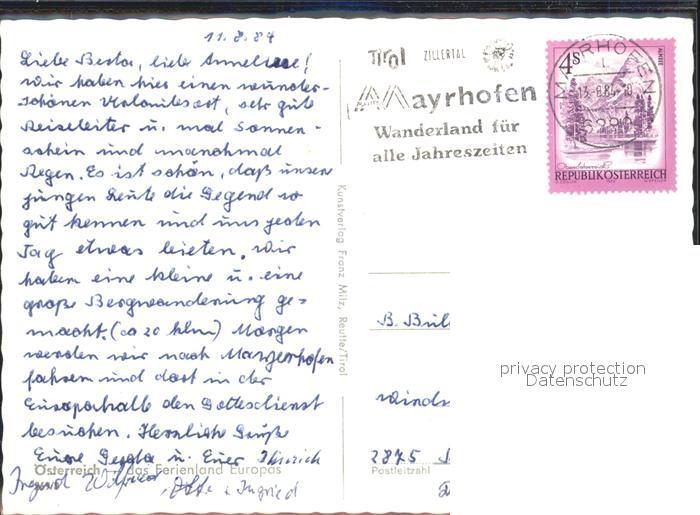 11.8.84
Liebe Berta, liebe Anneliese!
Wir haben hier einen wunder-
schönen Urlaubsort, sehr gute
Reiseleiter u. mal Sonnen-
schein und manchmal
Regen. Es ist schön, daß unsere
jungen Leute die Gegend so
gut kennen und uns jeden
Tag etwas bieten. Wir
haben eine kleine u. eine
große Bergwanderung ge-
macht. (ca 20 klm) Morgen
werden wir nach Mayerhofen
fahren und dort in der
Europahalle den Gottesdienst
besuchen. Herzliche Grüße
Eure u. Euer Hinrich
Österreich das Ferienland Europas
Irmgard Wilfried, u. Ingried
Kunstverlag Franz Milz, Reutte/Tirol
Tirol ZILLERTAL
Mayrhofen
Wanderland für
alle Jahreszeiten
MAYRHOFEN
13.8.84
6290
4S
REPUBLIK ÖSTERREICH
B. Bul
Winds
2875
Postleitzahl
privacy protection
Datenschutz